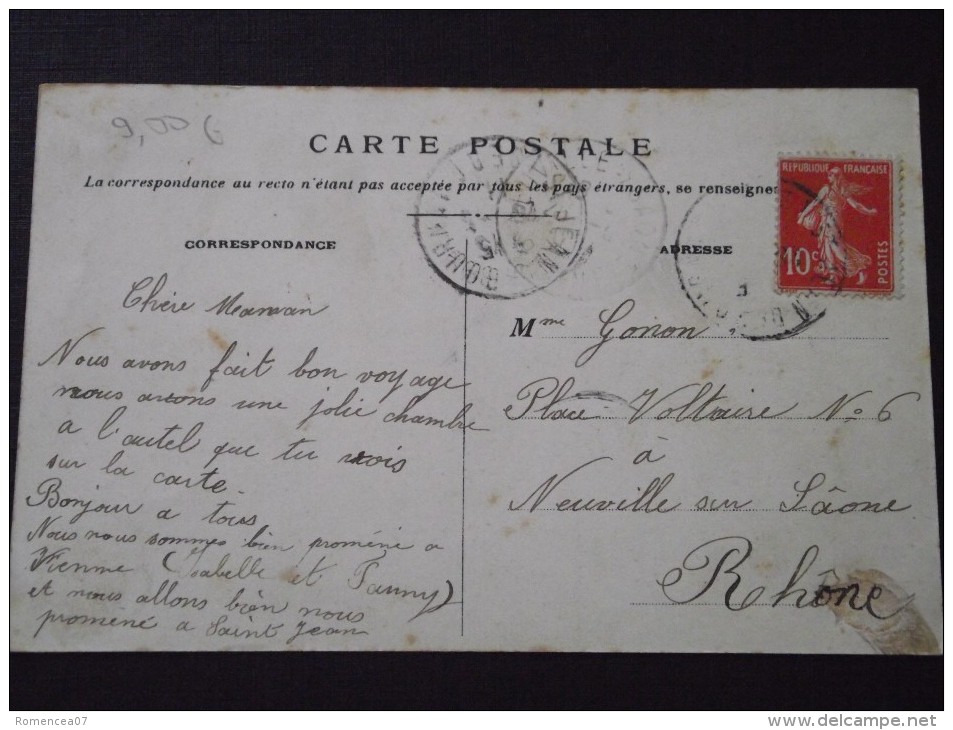 9,00 €
CARTE POSTALE
La correspondance au recto n'étant pas acceptée par tous les pays étrangers, se renseigner
REPUBLIQUE FRANÇAISE
10c
POSTES
CORRESPONDANCE
ADRESSE
Chère Maman
Nous avons fait bon voyage
nous avons une jolie chambre
a l'autel que tu vois
sur la carte.
Bonjour a tous
Nous nous sommes bien promené a
Vienne (Isabelle et Fanny)
et nous allons bien nous
promené a Saint Jean
Mme Gonon
Place Voltaire No 6
à
Neuville sur Sâone
Rhône
Romencea07
www.delcampe.net